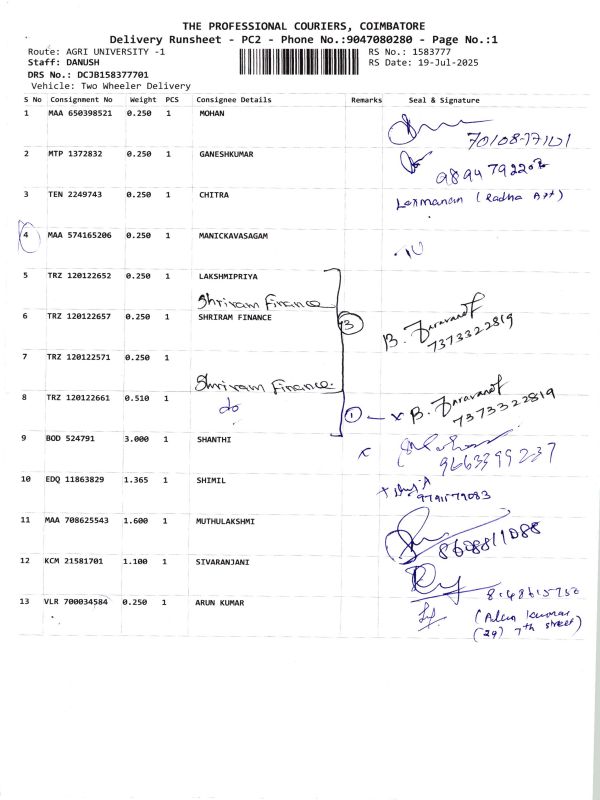 THE PROFESSIONAL COURIERS, COIMBATORE
Delivery Runsheet - PC2 - Phone No.:9047080280 - Page No.:1
Route: AGRI UNIVERSITY -1
RS No.: 1583777
Staff: DANUSH
RS Date: 19-Jul-2025
DRS No.: DCJB158377701
Vehicle: Two Wheeler Delivery
S No Consignment No Weight PCS Consignee Details Remarks Seal & Signature
1 MAA 650398521 0.250 1 MOHAN
70108-77101
2 MTP 1372832 0.250 1 GANESHKUMAR
3 TEN 2249743 0.250 1 CHITRA
(Radha Art)
4 MAA 574165206 0.250 1 MANICKAVASAGAM
5 TRZ 120122652 0.250 1 LAKSHMIPRIYA
Shriram Finance
6 TRZ 120122657 0.250 1 SHRIRAM FINANCE
3 B.
7373322819
7 TRZ 120122571 0.250 1
Shriram Finance
8 TRZ 120122661 0.510 1
do 1 - x B.
7373322819
9 BOD 524791 3.000 1 SHANTHI
9663399237
10 EDQ 11863829 1.365 1 SHIMIL
9791579083
11 MAA 708625543 1.600 1 MUTHULAKSHMI
8608811088
12 KCM 21581701 1.100 1 SIVARANJANI
8148615750
13 VLR 700034584 0.250 1 ARUN KUMAR
(29) 7th street)